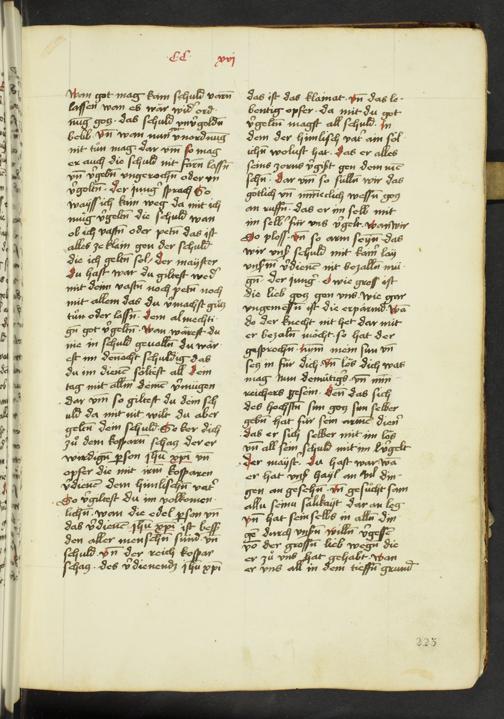 CC xvi
Wan got mag kain schuld varn
lassen wan es wär wider ord
nug gotz das schuld unvergolden
belib Vn wan nun unordnung
mit tün mag dar vm so mag
er auch die schuld mit farn lassn
vn vgeln ungerochn oder vn
vgoln. der jung sprach So
wayss ich kain weg da mit ich
mug vgeln die schuld wan
ob ich vastn oder petn das ist
alles ze klain gen der schuld
die ich geltn sol. der mayster
Du hast war du giltest wed
mit denn vastn noch petn noch
mit allem das du vmachst gutz
tün oder lassn. dem almechti
gn got vgeltn. Wan wärest du
nie in schuld gevalln du wär
est im dennocht schuldig das
du im dienen soltest all dein
tag mit allem deinem vmugen
dar vm so giltest du dein sch
uld da mit nit wilt du aber
geltn dein schuld So ker dich
zu dem kosparn schatz der er
wirdign pson jhu xpi vn
opfer die mit irm kosparen
vdienen dem himlischn vatr
So vgiltest du im volkomen
lichn. wan die edel pson vn
das vdienen jhu xpi ist bess
den aller menschn sund vn
schuld. vn der reich kospar
schatz des vdienendz jhu xpi
das ist das klainat. Vn das lo
bentig opfer da mit du got
vgeltn magst all schuld. in
dem der himlisch vatr ain sol
ichn wolust hat. das er alles
seins zorns vgist gen dem men
schn. dar vm so sulln wir das
gotlich vn mineclich wessn gotz
an ruffn. das er im selb mit
im selb für uns vgelt. wan wir
so ploss vn so arm seyen das
wir unser schuld mit kainerlay
unserm vdienen nit bezalln mu
gn. der jung O wie gross ist
die lieb gotz gen uns wie gar
ungemessn ist die erparmd. Wa
do der knecht nit het dar mit
er bezaln möcht. so hat der
gesprochn nim mein sun vn
setz in für dich vn lös dich was
mag nun demütigs vn min
reichers gesein. den das sich
des höchstn sun gotz sun selber
gebn hat für sein arme diener
das er sich selber mit im lös
vn all sein schuld mit im vgelt.
der mayst. Du hast war wa
er hat uns hayl an vil din
gen an gesehn vn gesucht sam
allu seinu sälikayt dar an leg
vn hat sein selbs in alln din
gn durch unsern willn vgessn
vo der grossn lieb wegn die
er zu uns hat gehabt. Wan
er uns all in dem tieffn grund
225